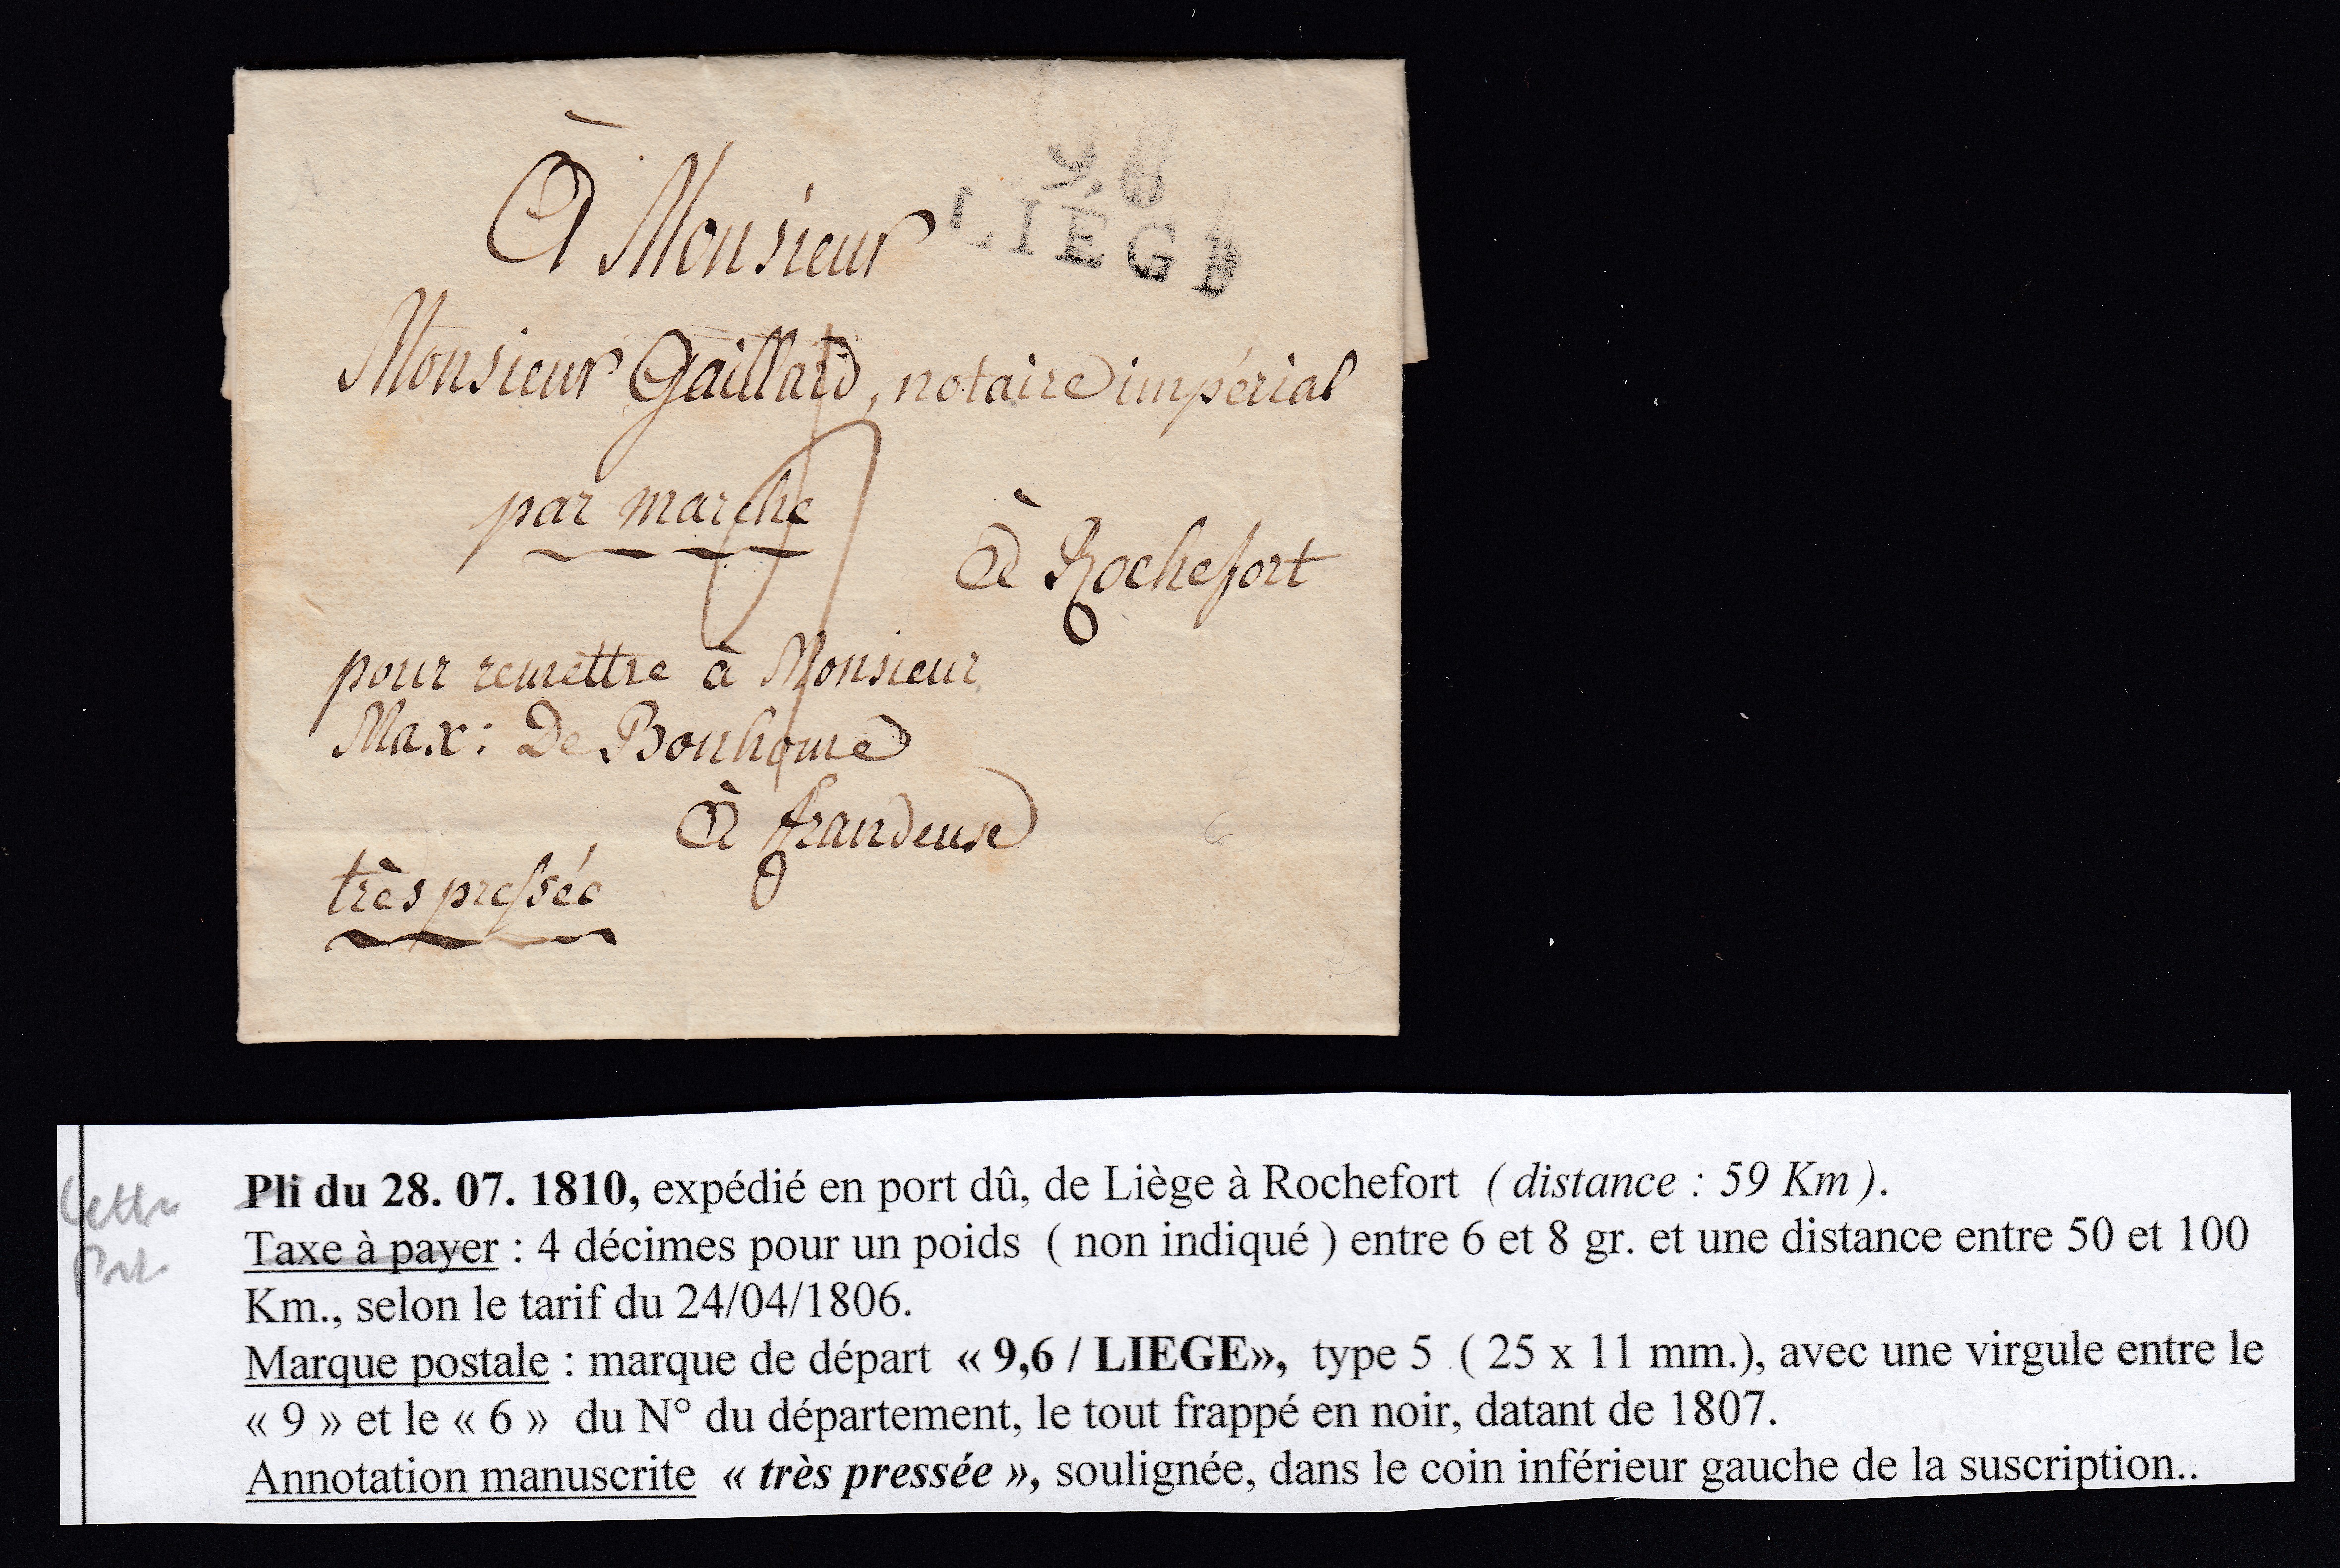 9,6
LIEGE
À Monsieur
Monsieur Gaillard, notaire impérial
par marche
4
à Rochefort
pour remettre à Monsieur
Max: De Bonhome
à frandeux
très pressée
Pli du 28. 07. 1810, expédié en port dû, de Liège à Rochefort ( distance : 59 Km ).
Taxe à payer : 4 décimes pour un poids ( non indiqué ) entre 6 et 8 gr. et une distance entre 50 et 100
Km., selon le tarif du 24/04/1806.
Marque postale : marque de départ « 9,6 / LIEGE», type 5 ( 25 x 11 mm.), avec une virgule entre le
« 9 » et le « 6 » du N° du département, le tout frappé en noir, datant de 1807.
Annotation manuscrite « très pressée », soulignée, dans le coin inférieur gauche de la suscription..